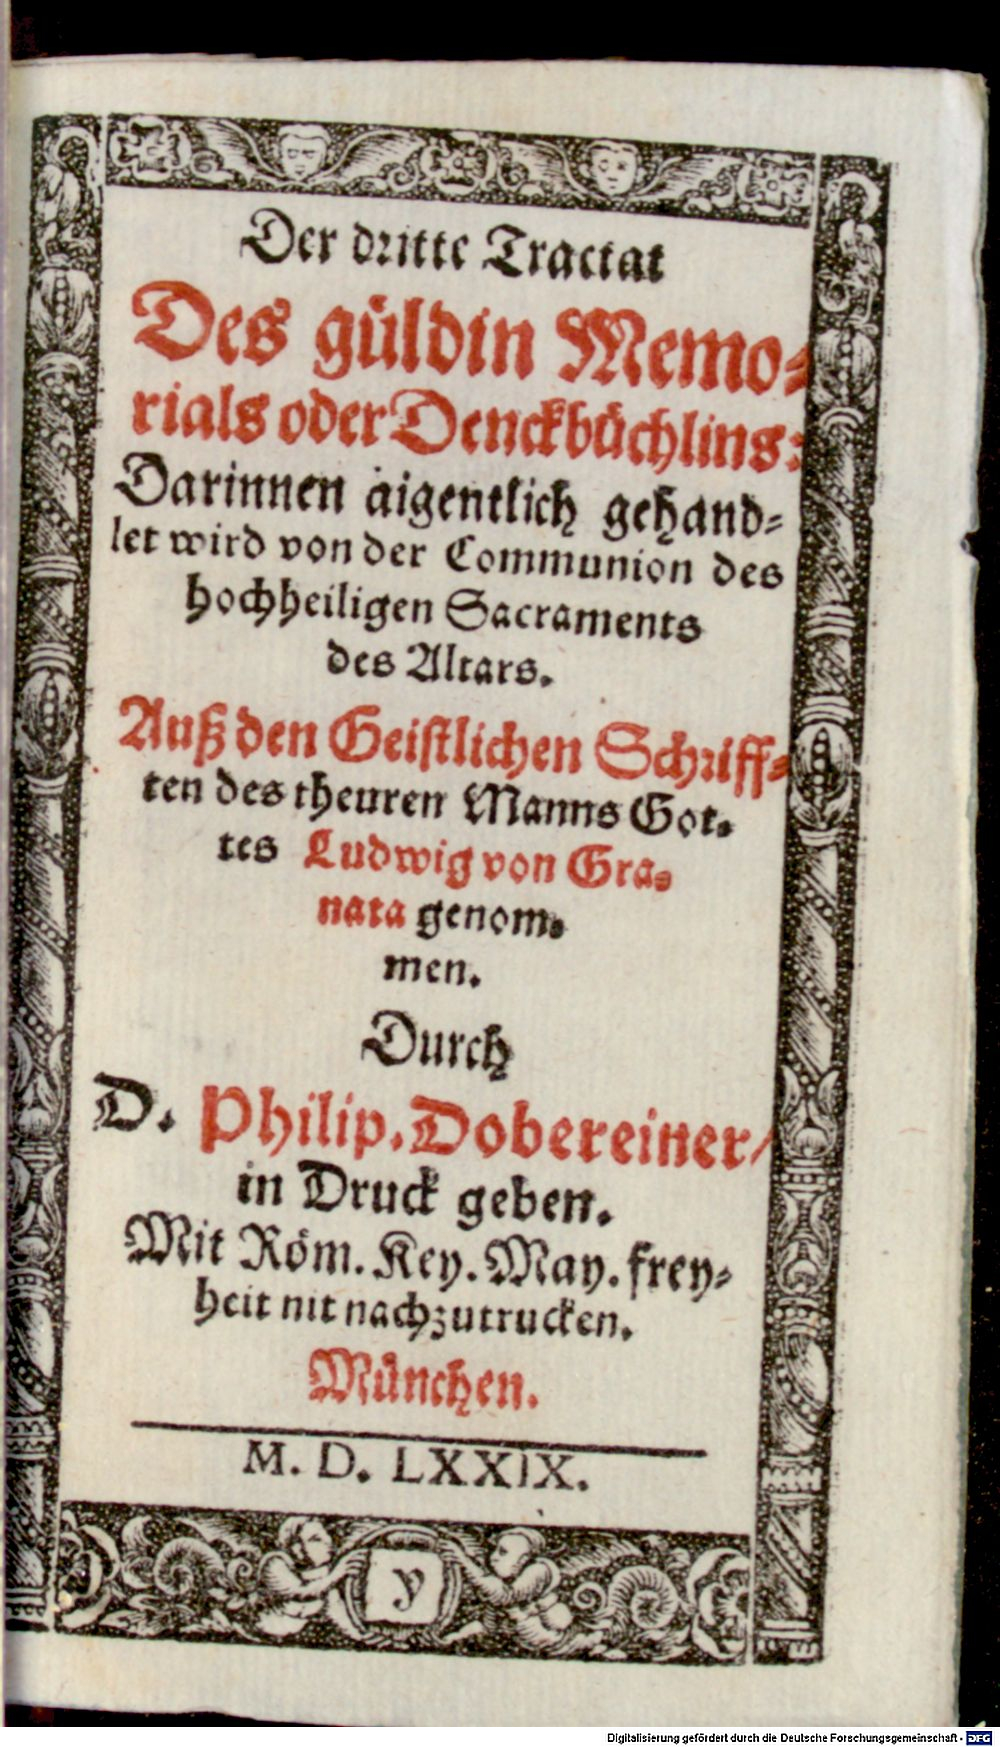 Der dritte Tractat
Des güldin Memo-
rials oder Denckbüchlins:
Darinnen aigentlich gehand-
let wird von der Communion des
hochheiligen Sacraments
des Altars.
Auß den Geistlichen Schriff-
ten des theuren Manns Got-
tes Ludwig von Gra-
nata genom-
men.
Durch
D. Philip. Dobereiner/
in Druck geben.
Mit Röm. Key. May. frey-
heit nit nachzutrucken.
München.
M. D. LXXIX.
y
Digitalisierung gefördert durch die Deutsche Forschungsgemeinschaft - DFG